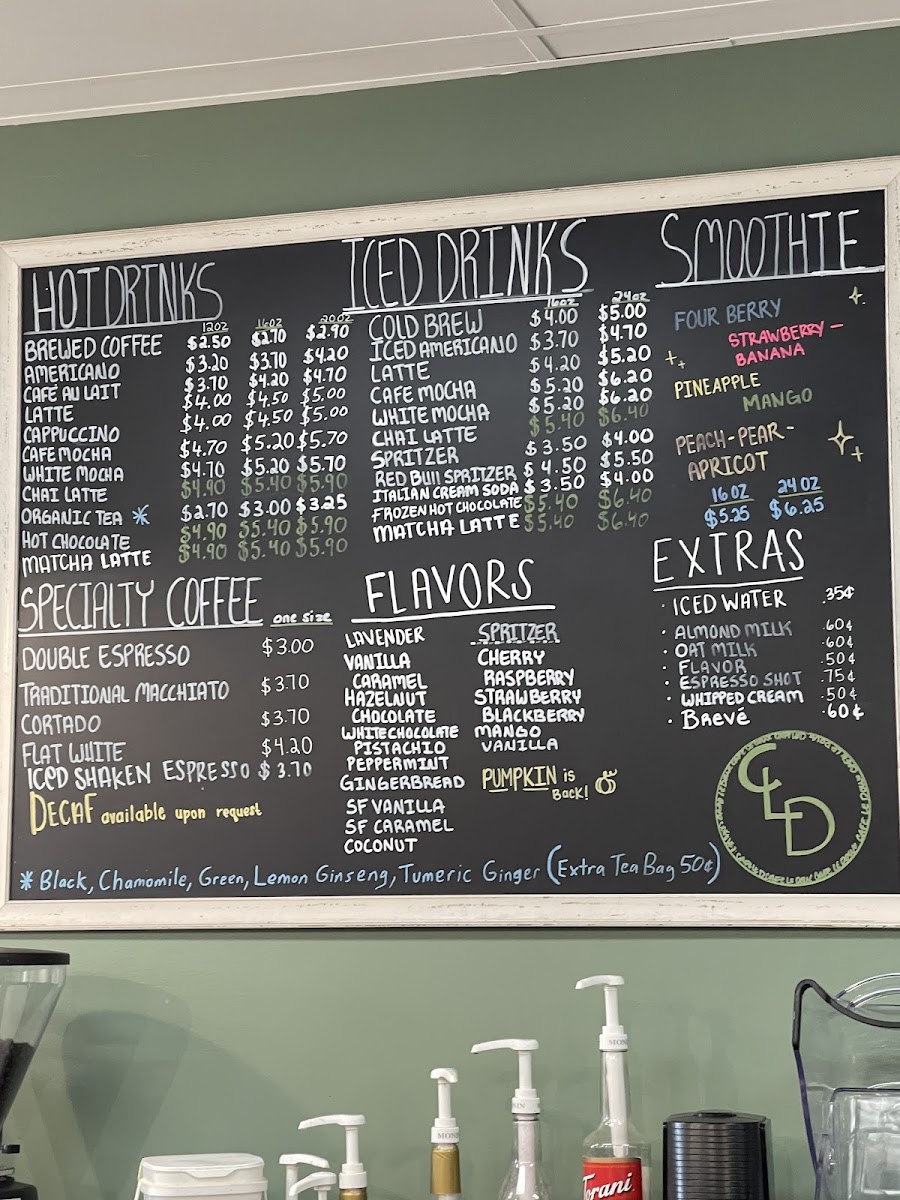 HOT DRINKS
12OZ 16OZ 20OZ
BREWED COFFEE $2.50 $2.70 $2.90
AMERICANO $3.20 $3.70 $4.20
CAFÉ AU LAIT $3.70 $4.20 $4.70
LATTE $4.00 $4.50 $5.00
CAPPUCCINO $4.00 $4.50 $5.00
CAFE MOCHA $4.70 $5.20 $5.70
WHITE MOCHA $4.70 $5.20 $5.70
CHAI LATTE $4.90 $5.40 $5.90
ORGANIC TEA * $2.70 $3.00 $3.25
HOT CHOCOLATE $4.90 $5.40 $5.90
MATCHA LATTE $4.90 $5.40 $5.90
ICED DRINKS
16OZ 24OZ
COLD BREW $4.00 $5.00
ICED AMERICANO $3.70 $4.70
LATTE $4.20 $5.20
CAFE MOCHA $5.20 $6.20
WHITE MOCHA $5.20 $6.20
CHAI LATTE $5.40 $6.40
SPRITZER $3.50 $4.00
RED BUll SPRITZER $4.50 $5.50
ITALIAN CREAM SODA $3.50 $4.00
FROZEN HOT CHOCOLATE $5.40 $6.40
MATCHA LATTE $5.40 $6.40
SMOOTHIE
FOUR BERRY
STRAWBERRY-
BANANA
PINEAPPLE
MANGO
PEACH-PEAR-
APRICOT
16OZ 24OZ
$5.25 $6.25
SPECIALTY COFFEE one size
DOUBLE ESPRESSO $3.00
TRADITIONAL MACCHIATO $3.70
CORTADO $3.70
FLAT WHITE $4.20
ICED SHAKEN ESPRESSO $3.70
DECAF available upon request
FLAVORS
LAVENDER
VANILLA
CARAMEL
HAZELNUT
CHOCOLATE
WHITE CHOCOLATE
PISTACHIO
PEPPERMINT
GINGERBREAD
SF VANILLA
SF CARAMEL
COCONUT
SPRITZER
CHERRY
RASPBERRY
STRAWBERRY
BLACKBERRY
MANGO
VANILLA
PUMPKIN is
BACK!
EXTRAS
· ICED WATER .35¢
· ALMOND MILK .60¢
· OAT MILK .60¢
· FLAVOR .50¢
· ESPRESSO SHOT .75¢
· WHIPPED CREAM .50¢
· Brevé .60¢
CLD
* Black, Chamomile, Green, Lemon Ginseng, Tumeric Ginger (Extra Tea Bag 50¢)
Torani